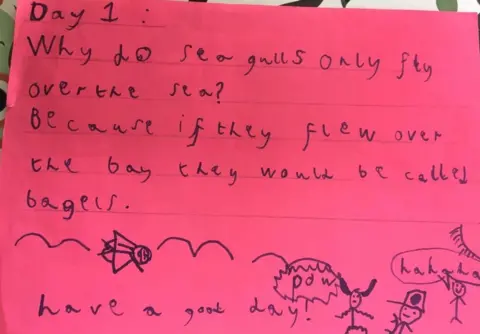 Day 1 :
Why do sea gulls only fly
over the sea?
Because if they flew over
the bay they would be called
bagels.
pow
hahaha
have a good day!